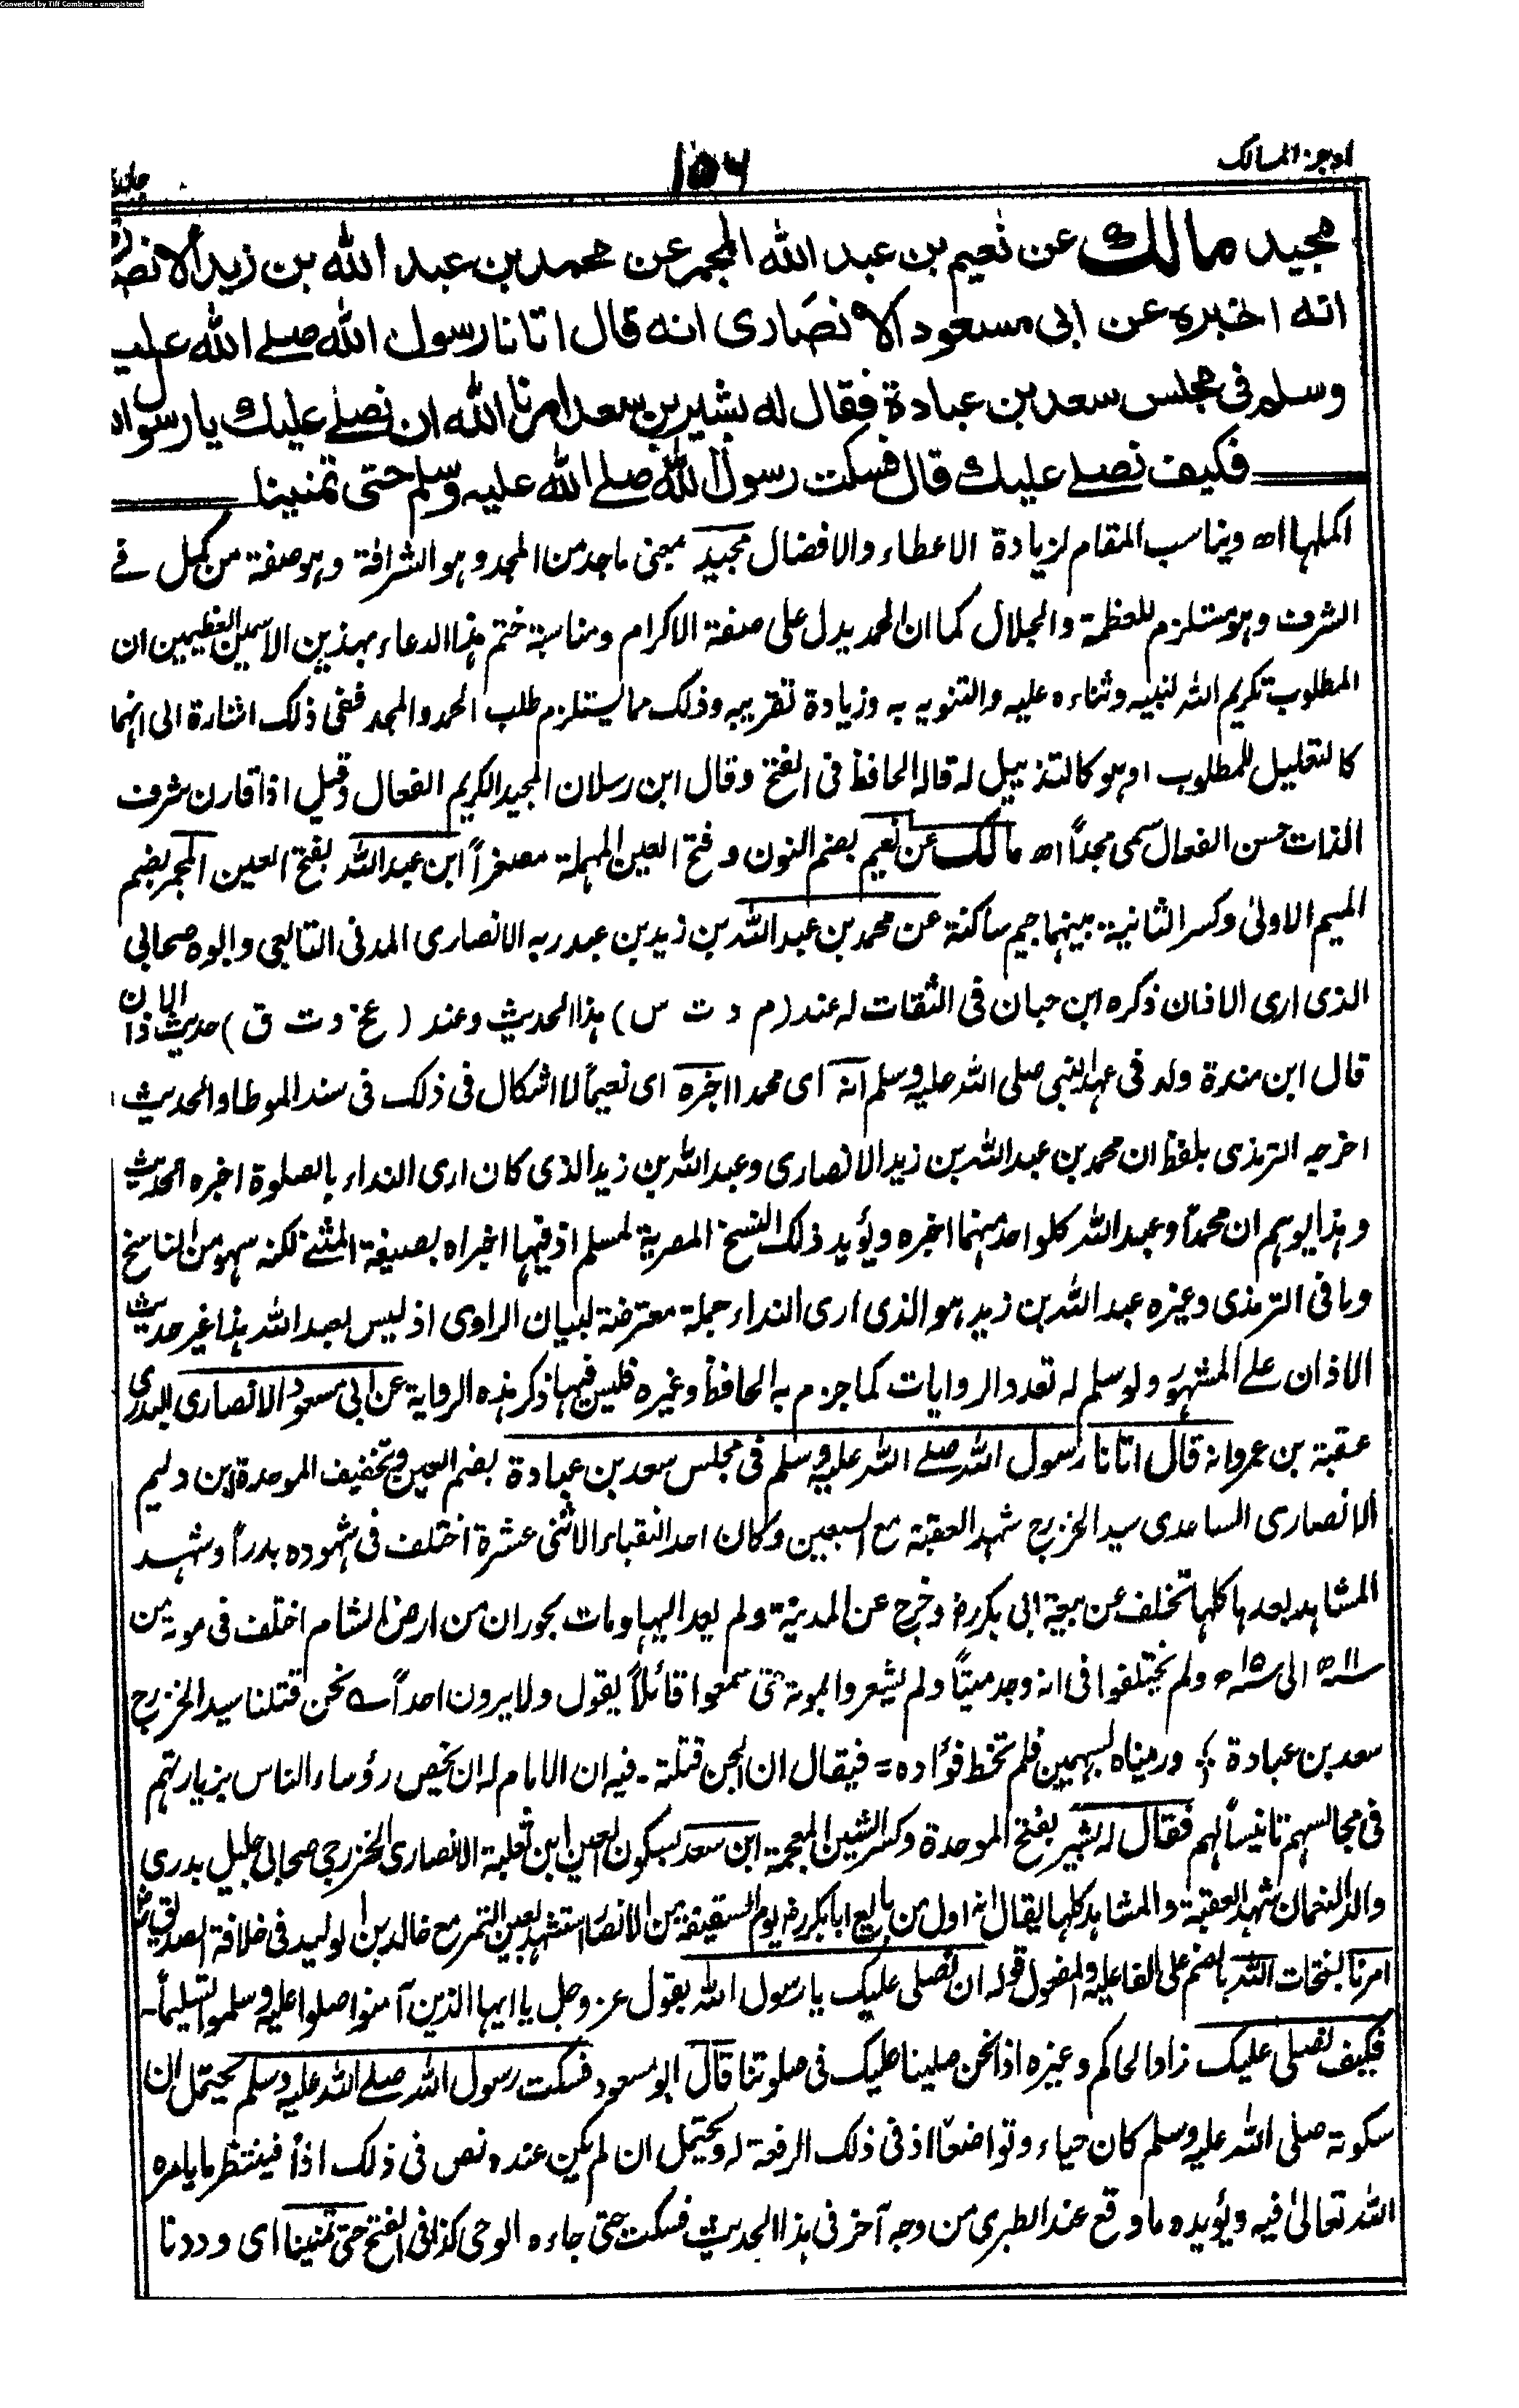 Converted by Tiff Combine - unregistered
اوجز المسالك
١٥٦
مجيد مالك عن نعيم بن عبد الله المجمر عن محمد بن عبد الله بن زيد الانصاري
انه اخبره عن ابى مسعود الانصارى انه قال اتانا رسول الله صلے الله عليه
وسلم فى مجلس سعد بن عبادة فقال له بشير بن سعد امرنا الله ان نصلے عليك يا رسول
فكيف نصلے عليك قال فسكت رسول الله صلے الله عليه وسلم حتى تمنينا
اكملها اھ ويناسب المقام لزيادة الاعطاء والافضال مجيد بمعنى ماجد من المجد وہو الشرافة وہو صفة من كمل فے
الشرف وہو مستلزم للعظمة والجلال كما ان الحمد يدل على صفة الاكرام ومناسبة ختم ہذا الدعاء بہذين الاسمين العظيمين ان
المطلوب تكريم الله لنبيه وثناءه عليه والتنويه به وزيادة تقريبه وذلك مما يستلزم طلب الحمد والمجد ففى ذلك اشارة الى انہما
كالتعليل للمطلوب او ہو كالتذييل له قاله الحافظ فى الفتح وقال ابن رسلان المجيد الكريم الفعال وقيل اذا قارن شرف
الذات حسن الفعال سمى مجداً اھ مالك عن نعيم بضم النون وفتح العين المہملة مصغراً ابن عبد الله بفتح العين المجمر بضم
الميم الاولىٰ وكسر الثانية بينہما جيم ساكنة عن محمد بن عبد الله بن زيد بن عبد ربه الانصارى المدنى التابعى وابوه صحابى
الذى ارى الاذان ذكره ابن حبان فى الثقات له عند (م د ت س) ہذا الحديث وعند (عخ د ت ق) حديث الاذان
قال ابن مندة ولد فى عہد النبى صلى الله عليه وسلم انه اى محمدا اخبره اى نعيماً لا اشكال فى ذلك فى سند الموطا والحديث
اخرجه الترمذى بلفظ ان محمد بن عبد الله بن زيد الانصارى وعبد الله بن زيد الذى كان ارى النداء بالصلوة اخبره الحديث
وہذا يوہم ان محمداً وعبد الله كلواحد منہما اخبره ويؤيد ذلك النسخ المصرية لمسلم اذ فيہا اخبراه بصيغة المثنے لكنه سہو من الناسخ
وما فى الترمذى وغيره عبد الله بن زيد ہو الذى ارى النداء جملة معترضة لبيان الراوى اذ ليس لعبد الله ہذا غير حديث
الاذان علے المشہور ولو سلم له تعدد الروايات كما جزم به الحافظ وغيره فليس فيہا ذكر ہذه الرواية عن ابى مسعود الانصارى البدرى
عقبة بن عمرو انه قال اتانا رسول الله صلے الله عليه وسلم فى مجلس سعد بن عبادة بضم العين وتخفيف الموحدة ابن دليم
الانصارى الساعدى سيد الخزرج شہد العقبة مع السبعين وكان احد النقباء الاثنى عشرة اختلف فى شہوده بدراً وشہد
المشاہد بعدہا كلہا تخلف عن بيعة ابى بكر رض وخرج عن المدينة ولم يعد اليہا ومات بحوران من ارض الشام اختلف فى موته من
سنه ١١ ھ الى سنه ١٥ ھ ولم يختلفوا فى انه وجد ميتاً ولم يشعروا بموته حتى سمعوا قائلاً يقول ولا يرون احداً ؎ نحن قتلنا سيد الخزرج
سعد بن عبادة ؛ ورميناه بسہمين فلم تخط فؤاده = فيقال ان الجن قتلته ـ فيه ان الامام له ان يخص رؤساء الناس بزيارتہم
فى مجالسہم تانيساً لہم فقال له بشير بفتح الموحدة وكسر الشين المعجمة ابن سعد بسكون العين ابن ثعلبة الانصارى الخزرجى صحابى جليل بدرى
والد النعمان شہد العقبة والمشاہد كلہا يقال انه اول من بايع ابا بكر رض يوم السقيفة من الانصار استشہد بعين التمر مع خالد بن الوليد فى خلافة الصديق
امرنا بفتحات الله بالضم على الفاعلية والمفعول قوله ان نصلى عليك يا رسول الله بقوله عز وجل يا ايہا الذين آمنوا صلوا عليه وسلموا تسليماً ـ
فكيف نصلى عليك زاد الحاكم وغيره اذا نحن صلينا عليك فى صلوتنا قال ابو مسعود فسكت رسول الله صلے الله عليه وسلم يحتمل ان
سكوته صلى الله عليه وسلم كان حياء وتواضعاً اذ فى ذلك الرفعة له ويحتمل ان لم يكن عنده نص فى ذلك اذاً فينتظر ما يامره
الله تعالىٰ فيه ويؤيده ما وقع عند الطبرى من وجه آخر فى ہذا الحديث فسكت حتى جاءه الوحى كذا فى الفتح حتى تمنينا اى وددنا